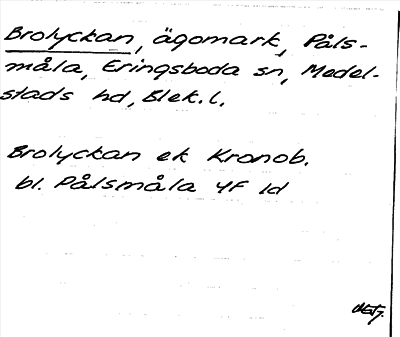 Brolyckan, ägomark, Påls-
måla, Eringsboda sn, Medel-
stads hd, Blek. l.
Brolyckan ek Kronob.
bl. Pålsmåla 4F 1d